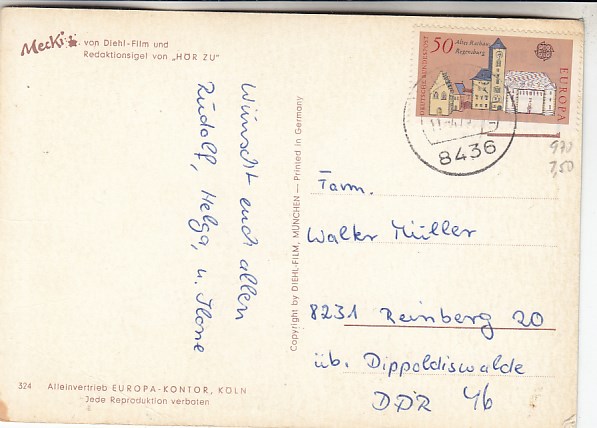 Mecki
von Diehl-Film und
Redaktionsigel von „HÖR ZU"
Wünscht euch allen
Rudolf, Helga, u. Ilone
324 Alleinvertrieb EUROPA-KONTOR, KÖLN
Jede Reproduktion verboten
Copyright by DIEHL-FILM, MÜNCHEN — Printed in Germany
DEUTSCHE BUNDESPOST
50
Altes Rathaus
Regensburg
EUROPA
8436
970
7,50
Fam.
Walter Müller
8231 Reinberg 20
üb. Dippoldiswalde
DDR